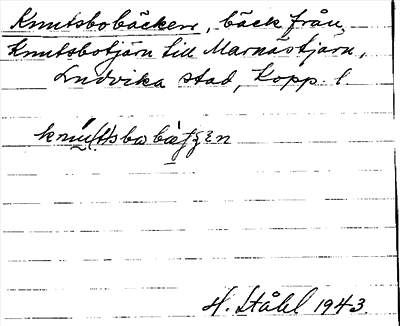 Knutsbobäcken, bäck från
Knutsbotjärn till Marnästjärn,
Ludvika stad, Kopp. l
H. Ståhl 1943.